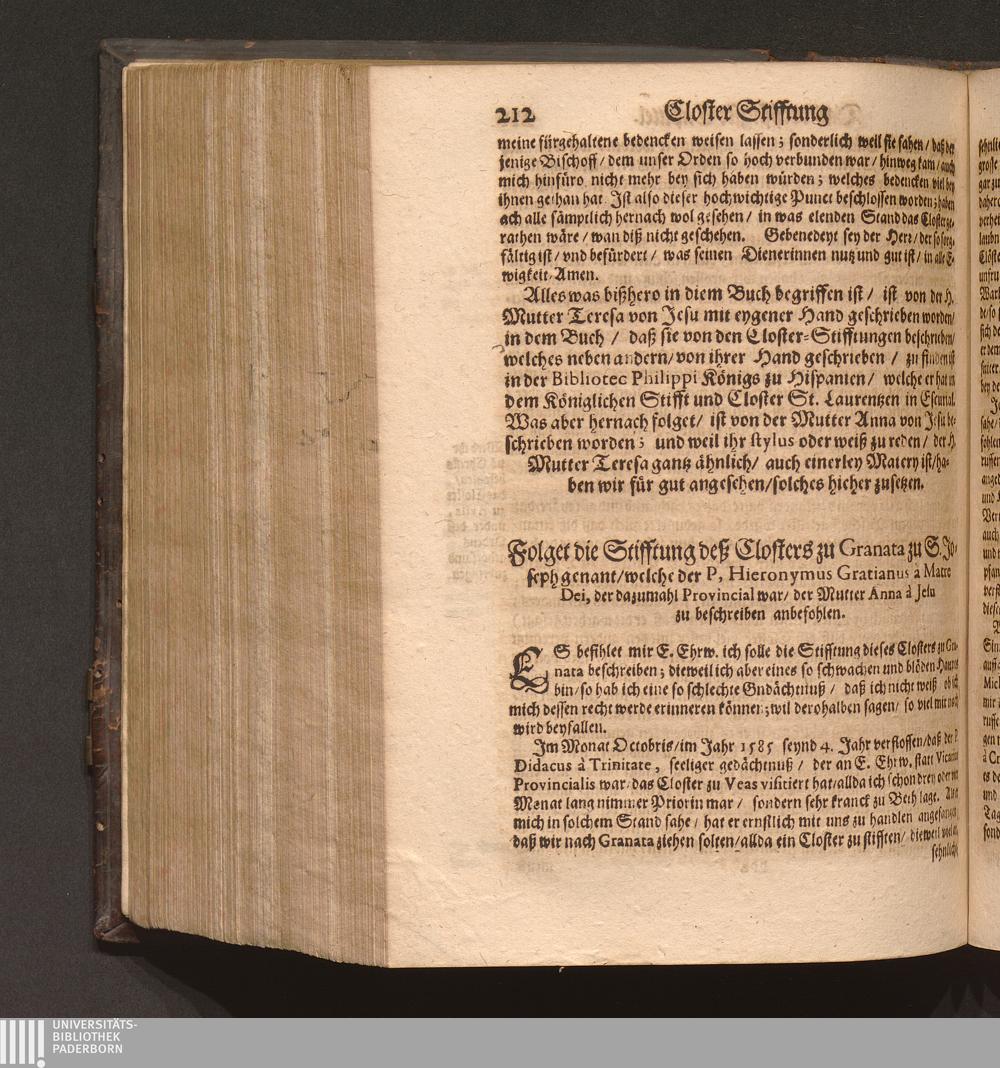 212 Closter Stifftung
meine fürgehaltene bedencken weisen lassen; sonderlich weil sie sahen / daß der
jenige Bischoff / dem unser Orden so hoch verbunden war / hinweg kam / auch
mich hinfüro nicht mehr bey sich haben würden; welches bedencken viel bey
ihnen gethan hat. Ist also dieser hochwichtige Punct beschlossen worden; haben
ach alle sämptlich hernach wol gesehen / in was elenden Stand das Closter ge-
rathen wäre / wan diß nicht geschehen. Gebenedeyt sey der Herr / der so sorg-
fältig ist / vnd befürdert / was seinen Dienerinnen nutz und gut ist / in alle E-
wigkeit / Amen.
Alles was bißhero in diem Buch begriffen ist / ist von der H.
Mutter Teresa von Jesu mit eygener Hand geschrieben worden /
in dem Buch / daß sie von den Closter-Stifftungen beschrieben /
welches neben andern / von ihrer Hand geschrieben / zu finden ist
in der Bibliotec Philippi Königs zu Hispanien / welche er hat in
dem Königlichen Stifft und Closter St. Laurentzen in Escurial.
Was aber hernach folget / ist von der Mutter Anna von Jesu be-
schrieben worden; und weil ihr stylus oder weiß zu reden / der H.
Mutter Teresa gantz ähnlich / auch einerley Matery ist / ha-
ben wir für gut angesehen / solches hieher zusetzen.
Folget die Stifftung deß Closters zu Granata zu S. Jo-
seph genant / welche der P, Hieronymus Gratianus à Matre
Dei, der dazumahl Provincial war / der Mutter Anna à Jesu
zu beschreiben anbefohlen.
ES befihlet mir E. Ehrw. ich solle die Stifftung dieses Closters zu Gra-
nata beschreiben; dieweil ich aber eines so schwachen und blöden Haupts
bin / so hab ich eine so schlechte Gedächtnuß / daß ich nicht weiß ob ich
mich dessen recht werde erinneren können; wil derohalben sagen / so viel mir noch
wird beyfallen.
Im Monat Octobris / im Jahr 1585 seynd 4. Jahr verflossen / daß der P.
Didacus à Trinitate, seeliger gedächtnuß / der an E. Ehrw. statt Vicarius
Provincialis war / das Closter zu Veas visitiert hat / allda ich schon drey oder vier
Monat lang nimmer Priorin war / sondern sehr kranck zu Beth lage. Als er
mich in solchem Stand sahe / hat er ernstlich mit uns zu handlen angefangen /
daß wir nach Granata ziehen solten / allda ein Closter zu stifften / dieweil
sehnliche
UNIVERSITÄTS-
BIBLIOTHEK
PADERBORN